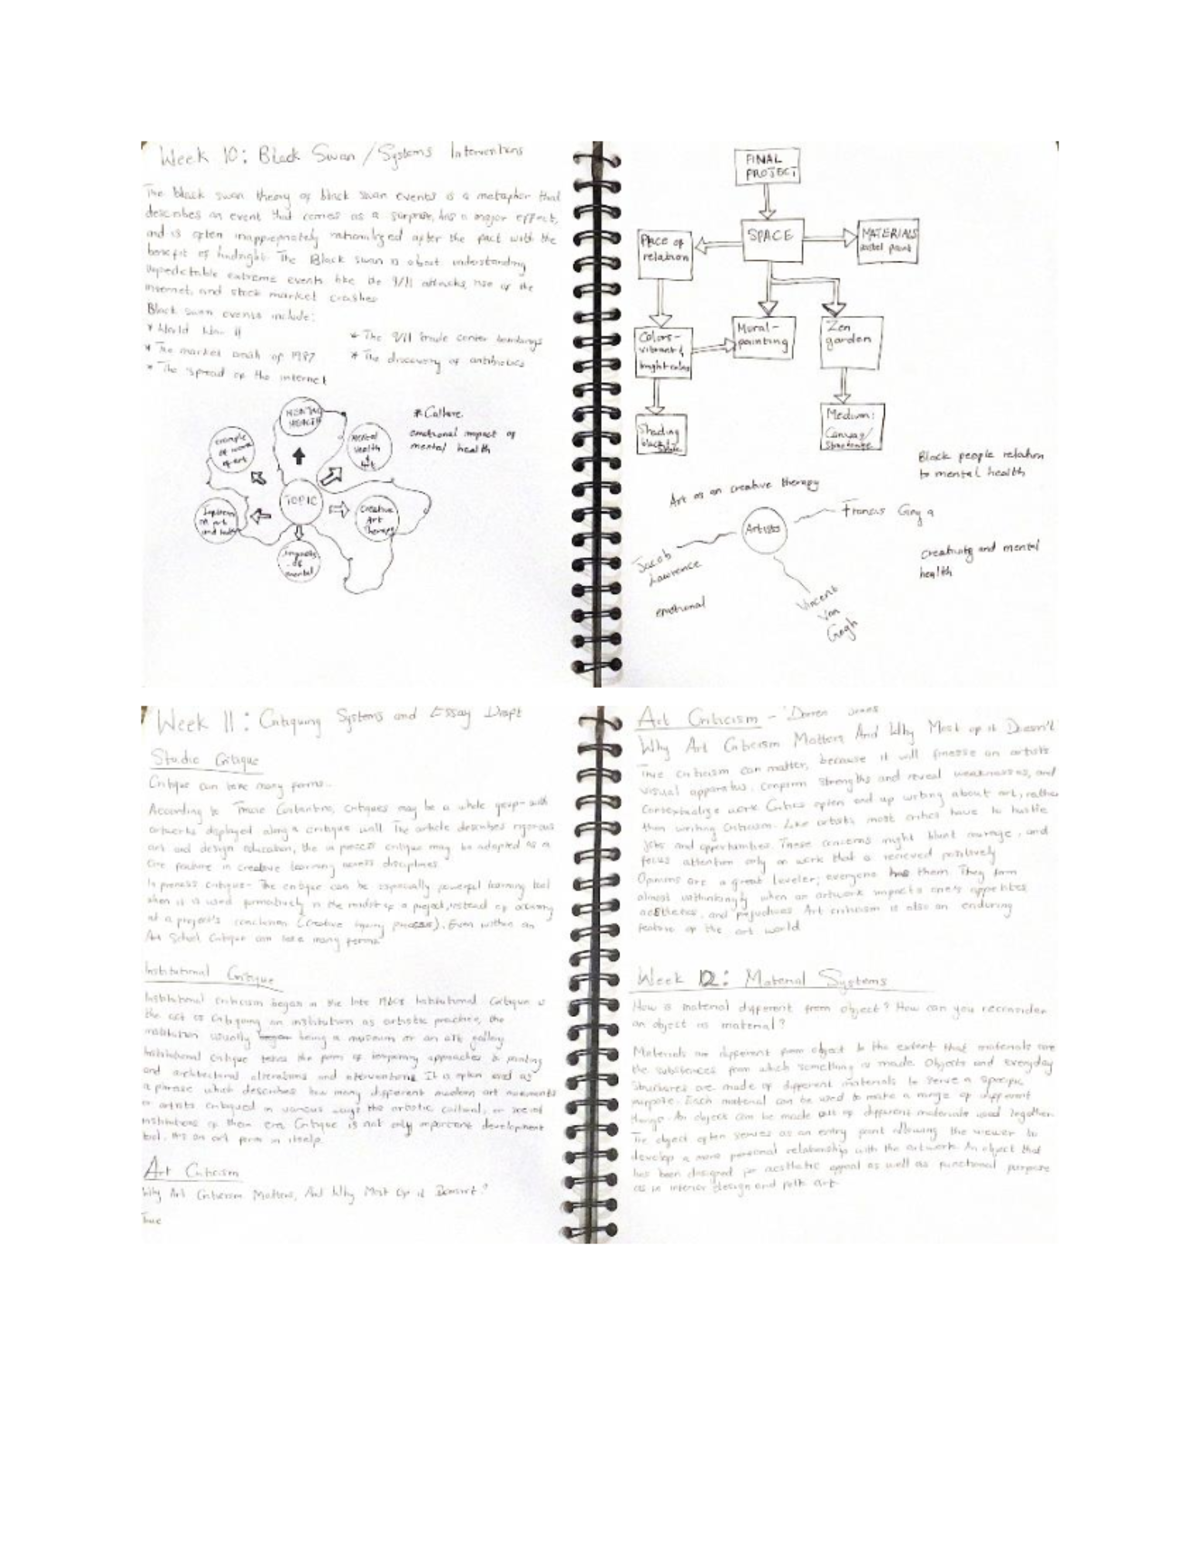 Week 10: Black Swan / Systems Interventions
The black swan theory of black swan events is a metaphor that
describes an event that comes as a surprise, has a major effect,
and is often inappropriately rationalized after the fact with the
benefit of hindsight. The Black swan is about understanding
unpredictable extreme events like the 9/11 attacks, rise of the
internet, and stock market crashes
Black swan events include:
* World War II
* The market crash of 1987
* The spread of the internet
* The 9/11 trade center bombings
* The discovery of antibiotics
MENTAL
HEALTH
Mental
health
Art
Creative
Art
Therapy
impacts
of
mental
example
of work
of art
TOPIC
* Culture
emotional impact of
mental health
FINAL
PROJECT
SPACE
MATERIALS
pastel paint
relation
Colors-
vibrant &
bright colors
Mural-
painting
Zen
garden
Shading
Medium:
Canvas/
Black people relation
to mental health
Art as an creative therapy
Artists
Francis Goya
Jacob
Lawrence
emotional
Vincent
Van
Gogh
creativity and mental
health
Week 11: Critiquing Systems and Essay Draft
Studio Critique
Critique can take many forms.
According to critiques may be a whole group- with
artworks displayed along a critique wall. The article describes rigorous
art and design education, the in process critique may be adapted as a
core feature in creative learning across disciplines
In process critique- The critique can be especially powerful learning tool
when it is used formatively in the midst of a project, instead of occuring
at a project's conclusion (creative inquiry process). Even within an
Art School Critique can take many forms
Institutional Critique
Institutional criticism began in the late Institutional Critique is
the act of critiquing an institution as artistic practice, the
institution usually being a museum or an art gallery
Institutional critique takes the form of temporary approaches to painting
and architectural alterations and interventions. It is often used as
a phrase which describes how many different modern art movements
or artists critiqued in various ways the artistic cultural, or social
institutions of their era. Critique is not only important development
tool, its an art form in itself.
Art Criticism
Why Art Criticism Matters, And Why Most Of it Doesn't?
True
Art Criticism - Darren Jones
Why Art Criticism Matters And Why Most of it Doesn't
True criticism can matter, because it will finesse an artists
visual apparatus, confirm strengths and reveal weaknesses, and
contextualize work. Critics often end up writing about art, rather
than writing criticism. Like artists most critics have to hustle
jobs and opportunities. These concerns might blunt courage, and
focus attention only on work that is recieved positively
Opinions are a great leveler; everyone has them. They form
almost unthinkingly when an artwork impacts one's appetites
aesthetics, and prejudices. Art criticism is also an enduring
feature of the art world
Week 12: Material Systems
How is material different from object? How can you reconsider
an object as material?
Materials are different from object to the extent that materials are
the substances from which something is made. Objects and everyday
structures are made of different materials to serve a specific
purpose. Each material can be used to make a range of different
things. An object can be made out of different materials used together.
The object often serves as an entry point allowing the viewer to
develop a more personal relationship with the artwork. An object that
has been designed for aesthetic appeal as well as functional purpose
as in interior design and folk art